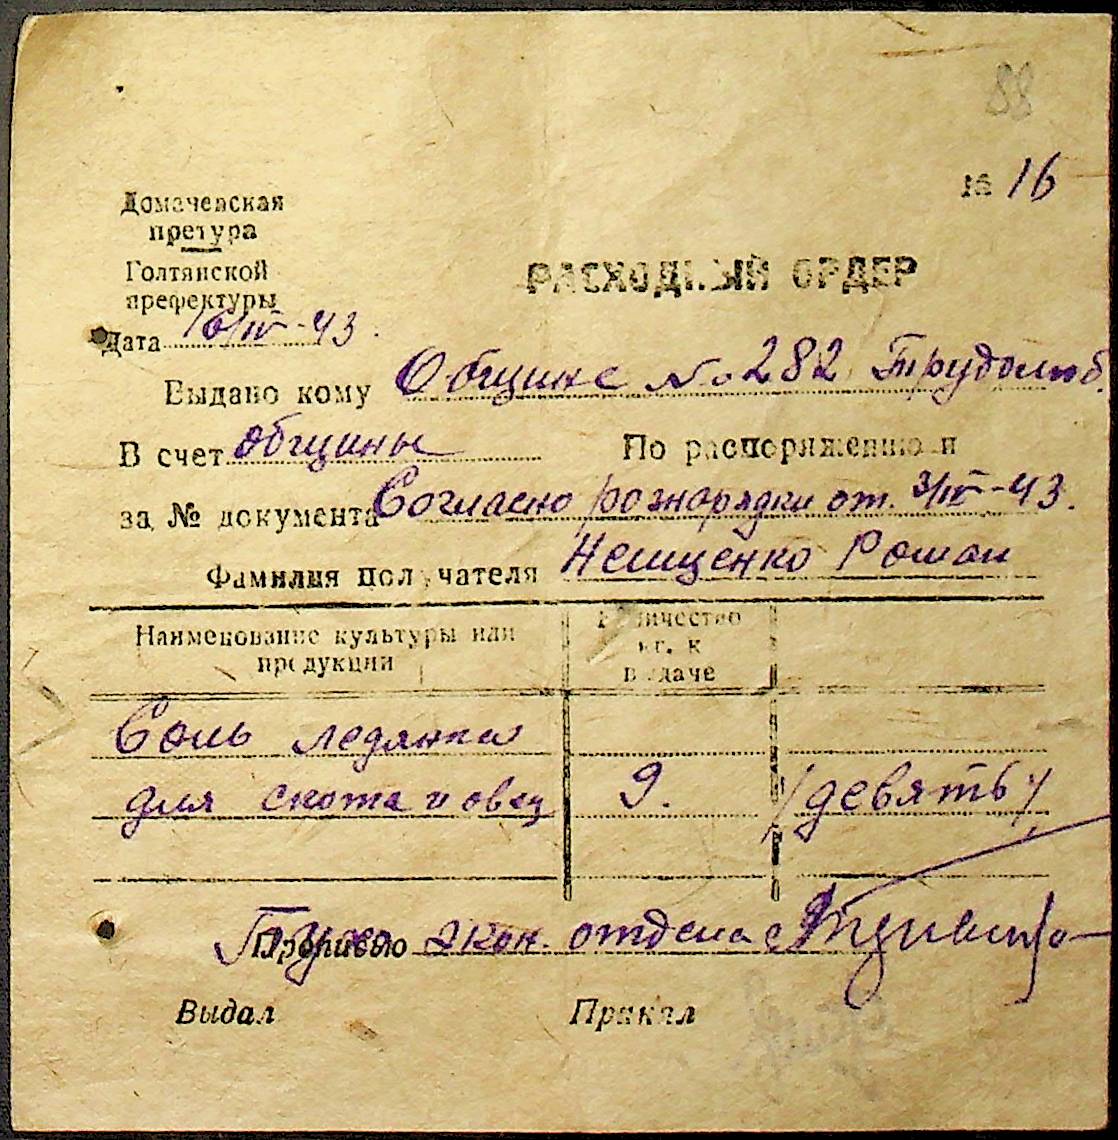 88
№ 16
Домачевская
претура
Голтянской
префектуры
РАСХОДНЫЙ ОРДЕР
Дата 16/IV-43.
Выдано кому Общине No 282 Трудолюб.
В счет общины По распоряжению и
за № документа Согласно рознорядки от. 3/IV-43.
Фамилия получателя Нещценко Роман
Наименование культуры или
продукции
Количество
кг. к
выдаче
Соль ледянка
для скота и овец 9. /девять/
Прописью экон. отдела
Выдал Принял